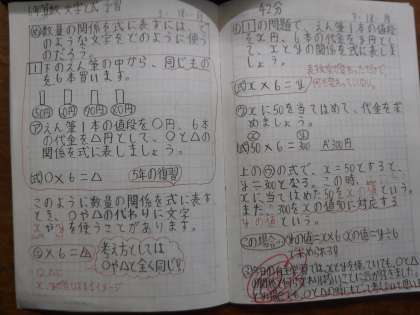 数量の関係を式に表すには、ど
のような文字をどのように使う
のだろう
1 下のえん筆の中から、同じもの
を6本買います。
50円 60円 90円 80円
㋐えん筆1本の値段を○円、6本
の代金を△円として、○と△の
関係を式に表しましょう。
(式)○×6=△ 5年の復習
このように数量の関係を式に表す
とき、○や△の代わりに文字
xやyを使うことがあります。
○×6=△
考え方としては
○や△と全く同じ!
42分
1の問題で、えん筆1本の値段
をx円、6本の代金をy円とし
て、xとyの関係を式に表しま
しょう。
(式)x×6=y
xに50を当てはめて、代金を求
めましょう。
(式)50×6=300 A 300円
上の の式で、x=50とすると、
y=300となる。この時、
xに当てはめた50をxの値という。
また、300をxの値50に対応する
yの値という。
この場合 yの値=x×6 xの値=y÷6